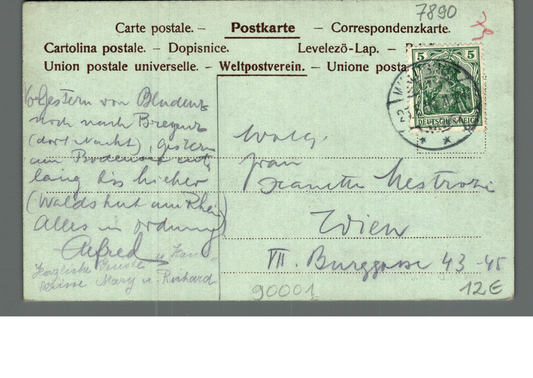 7890
Carte postale. – Postkarte – Correspondenzkarte.
Cartolina postale. – Dopisnice. Levelező-Lap. –
Union postale universelle. – Weltpostverein. – Unione posta
5 5
DEUTSCHES REICH
Gestern von Bludenz
noch nach Bregenz
(dort Nacht), gestern
am Bodensee ent-
lang bis hieher
(Waldshut am Rhein)
Alles in Ordnung
Alfred
Herzliche
Küsse Mary u. Richard
Wolg.
Frau
Jeanette Mestrozi
Wien
VII. Burggasse 43-45
90001
12€